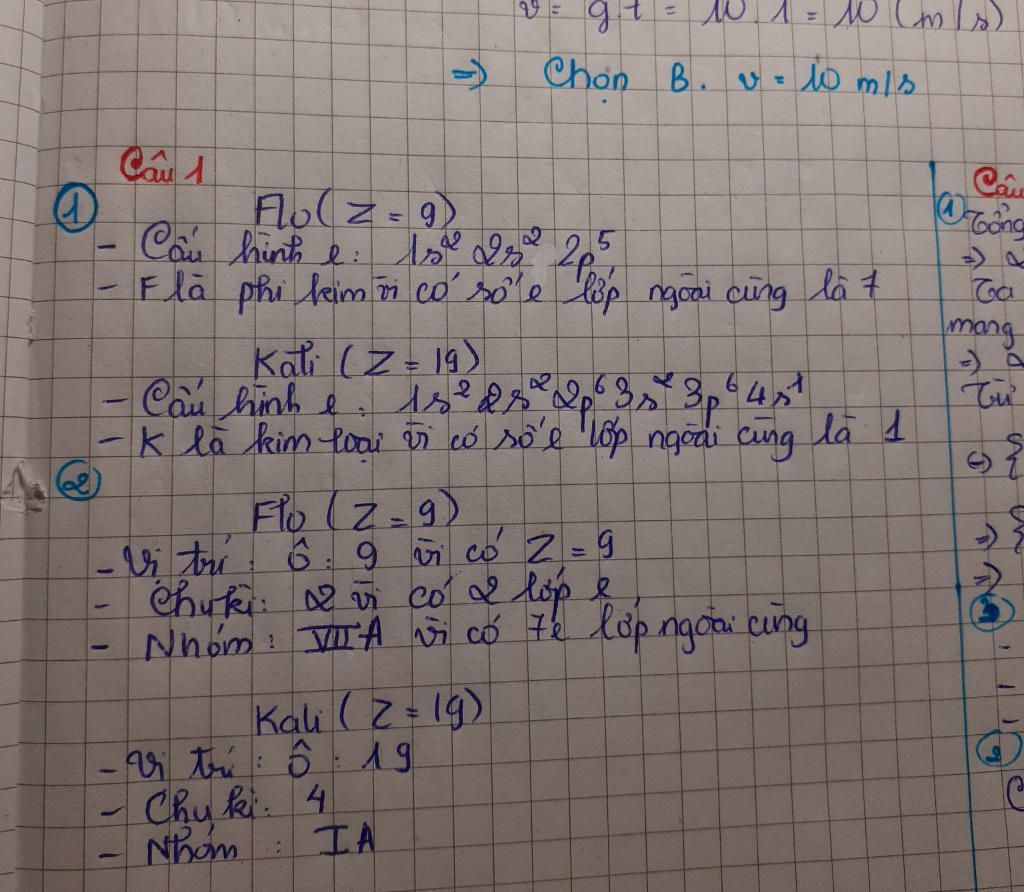 v = g.t = 10.1 = 10 (m/s)
=> Chọn B. v = 10 m/s
Câu 1
1
Flo (Z = 9)
- Cấu hình e: 1s² 2s² 2p⁵
- F là phi kim vì có số e lớp ngoài cùng là 7
Kali (Z = 19)
- Cấu hình e: 1s² 2s² 2p⁶ 3s² 3p⁶ 4s¹
- K là kim loại vì có số e lớp ngoài cùng là 1
2
Flo (Z = 9)
- Vị trí: Ô: 9 vì có Z = 9
- Chu kì: 2 vì có 2 lớp e
- Nhóm: VIIA vì có 7e lớp ngoài cùng
Kali (Z = 19)
- Vị trí: Ô: 19
- Chu kì: 4
- Nhóm: IA
Câu
1 Tổng
=> 2
Ta
mang
=>
Từ
<=> {
=> {
=>
3
-
-
-
2
C